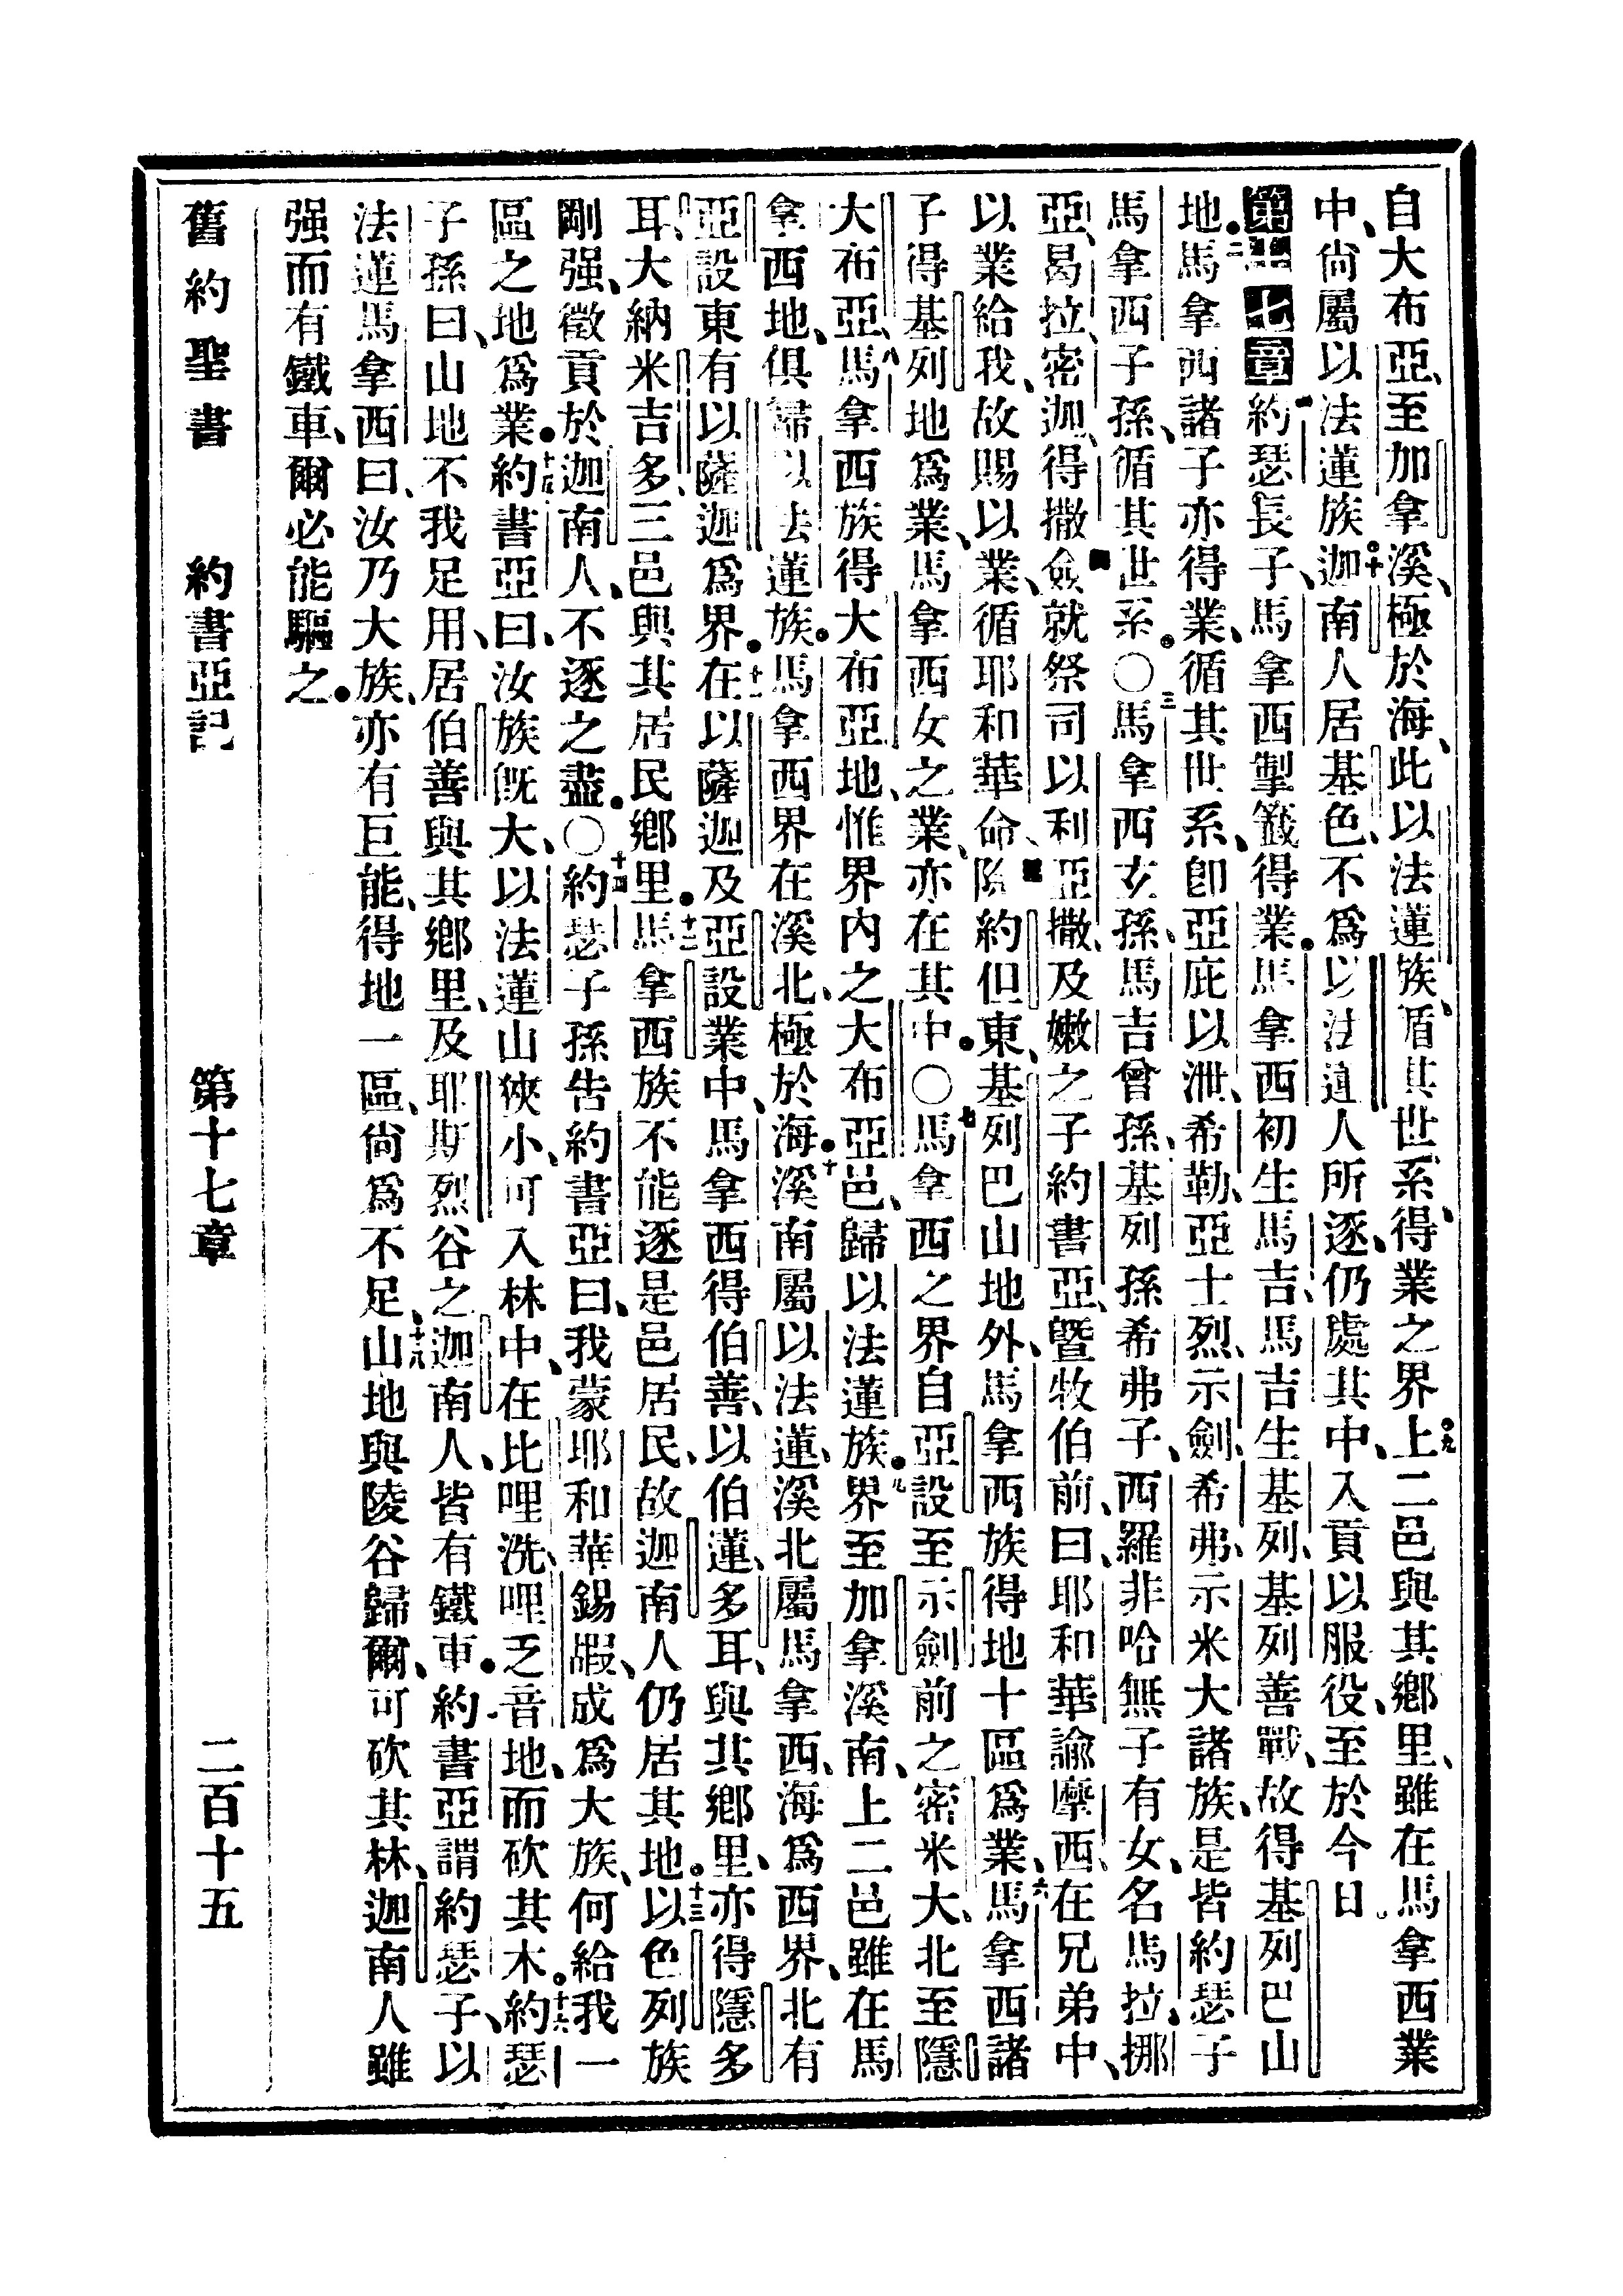 自大布亞、至加拿溪、極於海、此以法蓮族、循其世系、得業之界、九上二邑與其鄉里、雖在馬拿西業
中、尚屬以法蓮族、十迦南人居基色、不爲以法蓮人所逐、仍處其中、入貢以服役、至於今日。
第十七章 約瑟長子、馬拿西掣籤得業。馬拿西初生馬吉、馬吉生基列、基列善戰、故得基列巴山
地。二馬拿西諸子亦得業、循其世系、卽亞庇以泄、希勒、亞士烈、示劍、希弗、示米大諸族、是皆約瑟子
馬拿西子孫、循其世系。〇三馬拿西玄孫、馬吉曾孫、基列孫希弗子、西羅非哈無子有女、名馬拉、挪
亞、曷拉、密迦、得撒、四僉就祭司以利亞撒、及嫩之子約書亞、曁牧伯前、曰、耶和華諭摩西、在兄弟中、
以業給我、故賜以業、循耶和華命、五除約但東、基列巴山地外、馬拿西族得地十區爲業、六馬拿西諸
子得基列地爲業、馬拿西女之業、亦在其中。〇七馬拿西之界自亞設至示劍前之密米大、北至隱
大布亞、八馬拿西族得大布亞地、惟界內之大布亞邑、歸以法蓮族。九界至加拿溪南、上二邑雖在馬
拿西地、俱歸以法蓮族。馬拿西界在溪北、極於海。十溪南屬以法蓮、溪北屬馬拿西、海爲西界、北有
亞設東有以薩迦爲界。十一在以薩迦及亞設業中、馬拿西得伯善、以伯蓮、多耳、與其鄉里、亦得隱多
耳、大納米吉多三邑與其居民鄉里。十二馬拿西族不能逐是邑居民、故迦南人仍居其地。十三以色列族
剛强、徵貢於迦南人、不逐之盡。〇十四約瑟子孫告約書亞曰、我蒙耶和華錫嘏、成爲大族、何給我一
區之地爲業。十五約書亞曰、汝族旣大、以法蓮山狹小、可入林中、在比哩洗、哩乏音地、而砍其木。十六約瑟
子孫曰、山地不我足用、居伯善與其鄉里、及耶斯烈谷之迦南人、皆有鐵車。約書亞謂約瑟子、以
法蓮馬拿西曰、汝乃大族、亦有巨能、得地一區、尚爲不足、十八山地與陵谷歸爾、可砍其林、迦南人雖
强而有鐵車、爾必能驅之。
舊約聖書　約書亞記　第十七章　二百十五